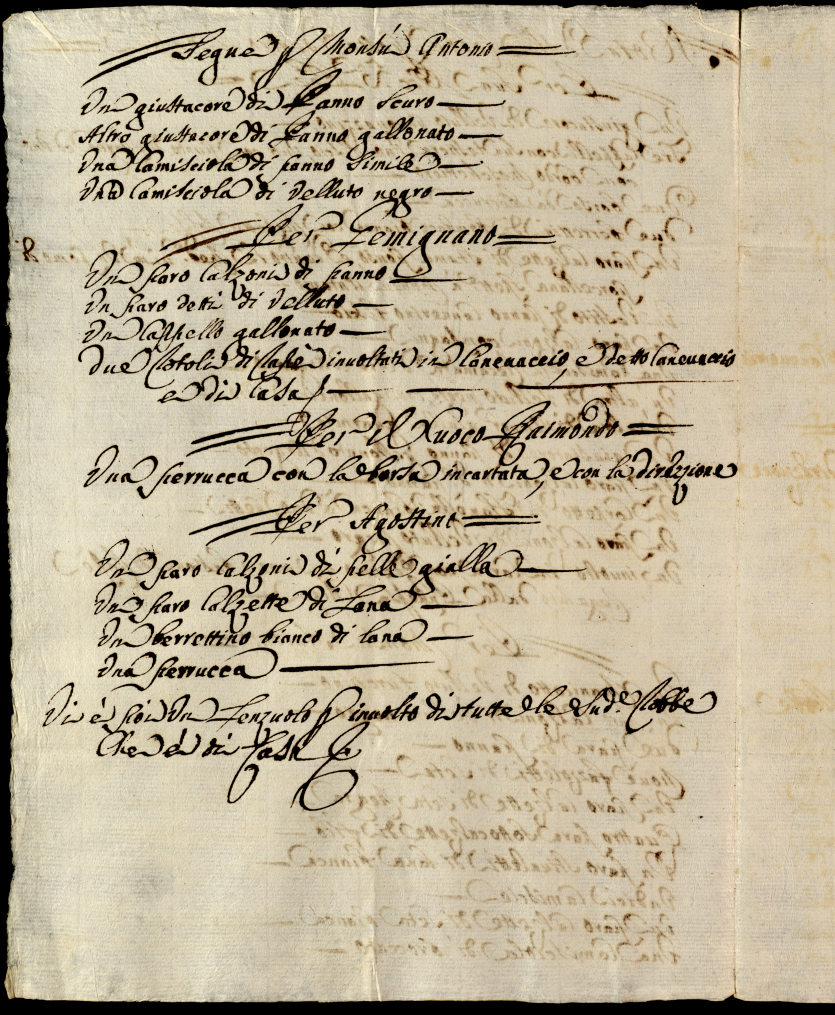 Segue p Monsú Antonio
Un giustacore di Panno scuro
Altro giustacore di Panno gallonato
Una Camisciola di panno simile
Una Camisciola di velluto negro
Per Gemignano
Un paro Calzoni di panno
Un paro detti di velluto
Un Cappello gallonato
due Cotoli di Cafè involtati in Canevaccio, e detto Canevaccio
e di Casa
Per il Cuoco Raimondo
Una perrucca con la borsa incartata, e con la direzzione
Per Agostino
Un paro Calzoni di pelle gialla
Un paro Calzette di Lana
Un berrettino bianco di lana
Una perrucca
Vi é poi Un Lenzuolo p involto di tutte le Sud.e Robbe
Che é di Casa